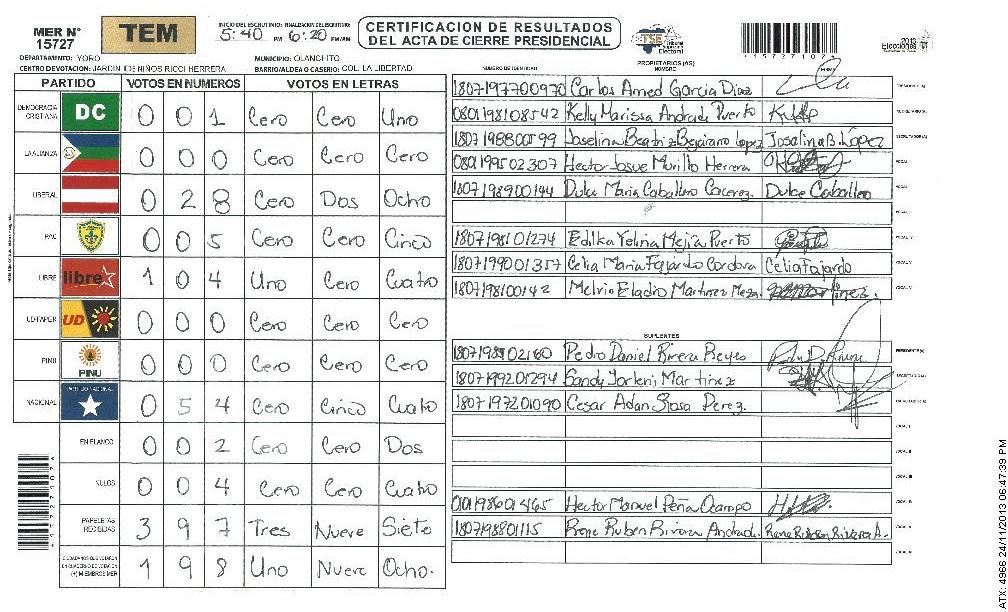 MER N° 15727
TEM
INICIO DEL ESCRUTINIO: FINALIZACION DEL ESCRUTINIO:
5:40 PM 6:20 PM/AM
CERTIFICACION DE RESULTADOS
DEL ACTA DE CIERRE PRESIDENCIAL
TSE Tribunal Supremo Electoral
157271071
2013 Elecciones
DEPARTAMENTO: YORO
MUNICIPIO: OLANCHITO
CENTRO DE VOTACION: JARDIN DE NIÑOS RICCI HERRERA
BARRIO/ALDEA O CASERIO: COL. LA LIBERTAD
PARTIDO VOTOS EN NUMEROS VOTOS EN LETRAS
DEMOCRACIA CRISTIANA DC 0 0 1 Cero Cero Uno
LA ALIANZA 0 0 0 Cero Cero Cero
LIBERAL 0 2 8 Cero Dos Ocho
PAC 0 0 5 Cero Cero Cinco
LIBRE libre 1 0 4 Uno Cero Cuatro
UD FAPER UD 0 0 0 Cero Cero Cero
PINU PINU 0 0 0 Cero Cero Cero
NACIONAL PARTIDO NACIONAL 0 5 4 Cero Cinco Cuatro
EN BLANCO 0 0 2 Cero Cero Dos
NULOS 0 0 4 Cero Cero Cuatro
PAPELETAS RECIBIDAS 3 9 7 Tres Nueve Siete
CIUDADANOS QUE VOTARON EN CUADERNO DE VOTACION (+) MIEMBROS MER 1 9 8 Uno Nueve Ocho.
PROPIETARIOS (AS)
NUMERO DE IDENTIDAD NOMBRE FIRMA
1807197700970 Carlos Amed Garcia Diaz PRESIDENTE (A)
0801198108542 Kelly Marissa Andrade Puerto SECRETARIO (A)
1807198800599 Joselina Beatriz Bejarano Lopez Josalina B. López ESCRUTADOR (A)
0801199502307 Hector Josue Morillo Herrera VOCAL I
1807198900144 Dulce Maria Caballero Cacerez Dulce Caballero VOCAL II
VOCAL III
1807198101274 Edilka Yelina Mejia Puerto VOCAL IV
1807199001357 Celia Maria Fajardo Cordova Celia Fajardo VOCAL V
1807198100142 Melvin Eladio Martinez Meza.
SUPLENTES
1807198302160 Pedro Daniel Rivera Reyes PRESIDENTE (A)
1807199201294 Sandy Yorleni Martinez SECRETARIO (A)
1807197201090 Cesar Adan Sosa Perez. ESCRUTADOR (A)
VOCAL I
VOCAL II
VOCAL III
0101198601465 Hector Manuel Peña Ocampo VOCAL IV
1807198801115 Rene Ruben Rivera Andrade. Rene Ruben Rivera A. VOCAL V
ATX: 4966 24/11/2013 06:47:39 PM